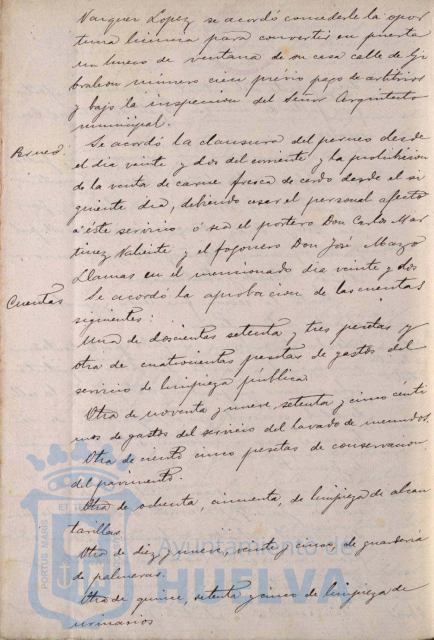 Vazquez Lopez se acordó concederle la opor
tuna licencia para convertir en puerta
un hueco de ventana de su casa calle de Gi
braleon numero cien previo pago de arbitrios
y bajo la inspeccion del Señor Arquitecto
municipal.
Perneo.
Se acordó la clausura del perneo desde
el dia veinte y dos del corriente y la prohibicion
de la venta de carne fresca de cerdo desde el si
guiente dia, debiendo cesar el personal afecto
a éste servicio ó sea el portero Don Carlos Mar
tinez Valiente y el fogonero Don José Mazo
Llamas en el mencionado dia veinte y dos
Cuentas
Se acordó la aprobacion de las cuentas
siguientes:
Una de doscientas setenta y tres pesetas y
otra de cuatrocientas pesetas de gastos del
servicio de limpieza pública
Otra de noventa y nueve, setenta y cinco cénti
mos de gastos del servicio del lavado de
Otra de ciento cinco pesetas de conservacion
del pavimento.
Otra de ochenta, cincuenta, de limpieza de alcan
tarillas
Otra de diez y nueve, veinte y cinco de guarderia
de palmeras.
Otra de quince, setenta y cinco de limpieza de
urinarios
PORTUS MARIS ET TERRE
Ayuntamiento de
HUELVA